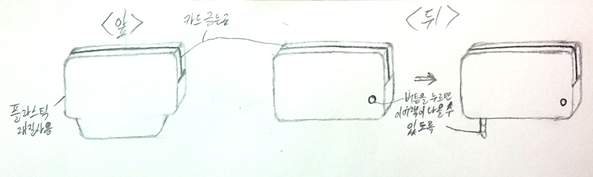 <앞>
카드 긁는곳
<뒤>
플라스틱
재질사용
버튼을 누르면
이어잭이 나올 수
있도록